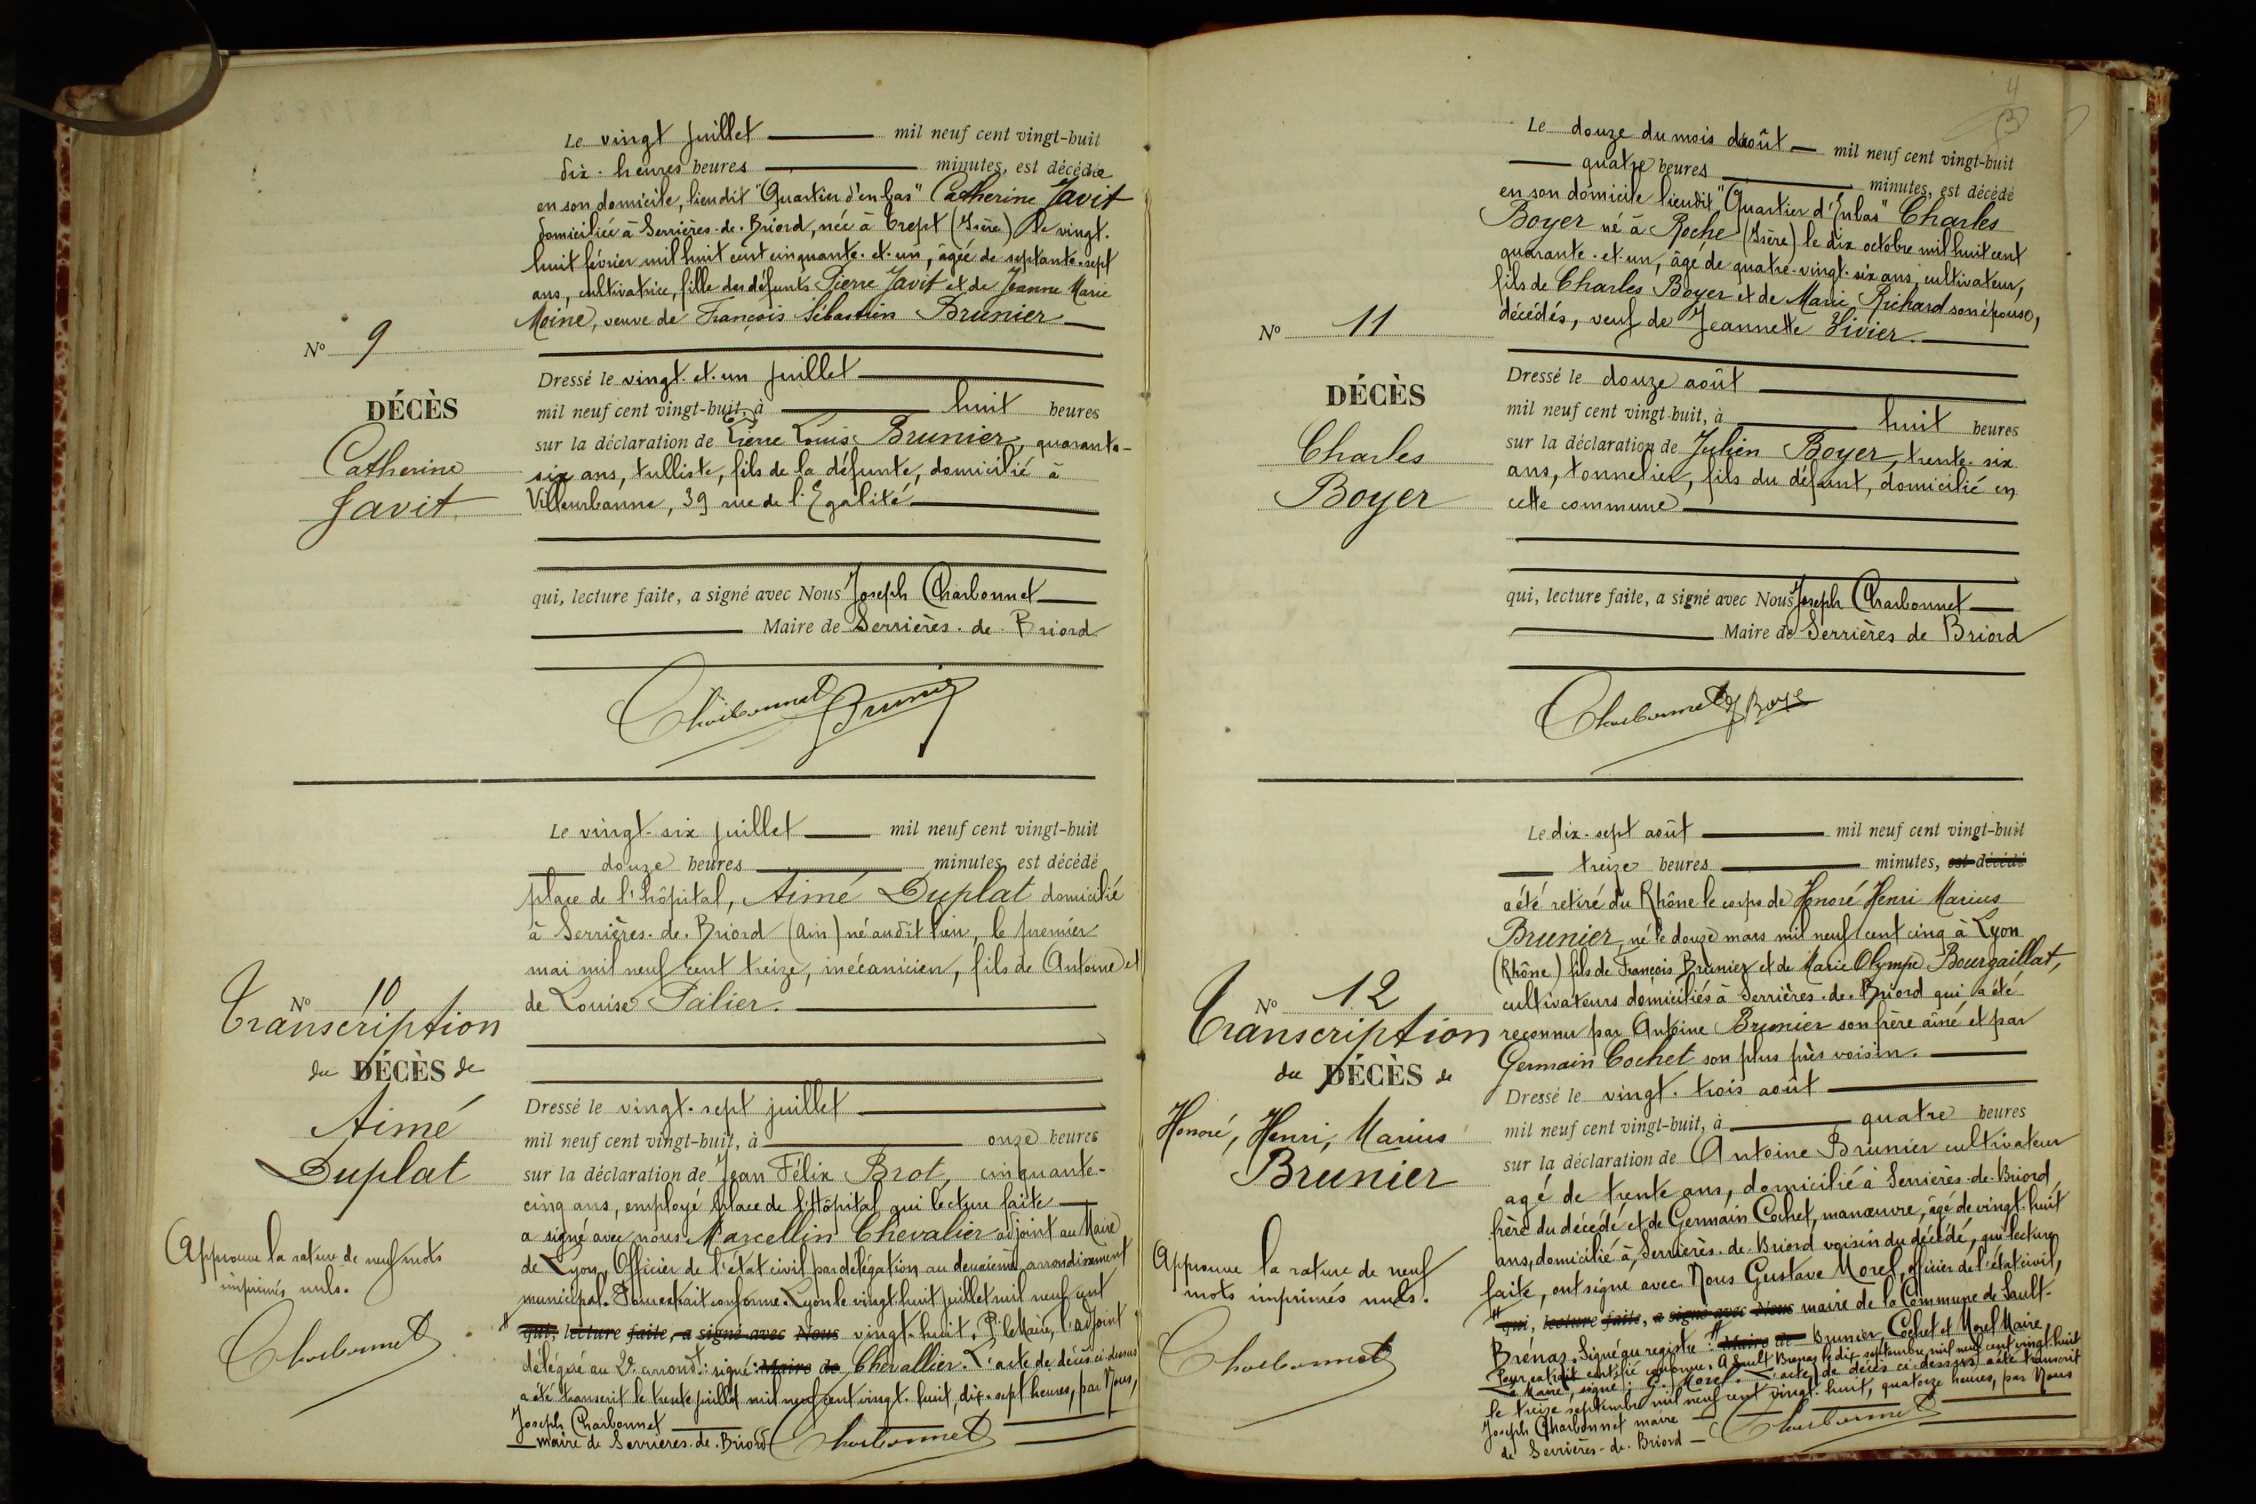 Le vingt juillet mil neuf cent vingt-huit
dix. heures heures minutes, est décédée
en son domicile, lieudit "Quartier d'en bas" Catherine Javit
domiciliée à Serrières-de-Briord, née à Trept (Isère) le vingt-
huit février mil huit cent cinquante-et-un, âgée de septante-sept
ans, cultivatrice, fille des défunts Pierre Javit et de Jeanne Marie
Moine, veuve de François Sébastien Brunier
N° 9
DÉCÈS
Catherine
Javit.
Dressé le vingt-et-un juillet
mil neuf cent vingt-huit, à huit heures
sur la déclaration de Pierre Louis Brunier, quarante-
six ans, tulliste, fils de la défunte, domicilié à
Villeurbanne, 39 rue de l'Egalité
qui, lecture faite, a signé avec Nous Joseph Charbonnet
Maire de Serrières-de-Briord
Charbonnet Brunier
Le vingt-six juillet mil neuf cent vingt-huit
douze heures minutes, est décédé
place de l'hôpital, Aimé Duplat domicilié
à Serrières-de-Briord (Ain) né audit lieu, le premier
mai mil neuf cent treize, mécanicien, fils de Antoine et
de Louise Pailier.
N° 10
Transcription
du DÉCÈS de
Aimé
Duplat
Approuve la rature de neuf mots
imprimés nuls.
Charbonnet
Dressé le vingt-sept juillet
mil neuf cent vingt-huit, à onze heures
sur la déclaration de Jean Félix Brot, cinquante-
cinq ans, employé place de l'Hôpital qui lecture faite
a signé avec nous Marcellin Chevalier adjoint au Maire
de Lyon, Officier de l'état civil par délégation au deuxième arrondissement
municipal. Pour extrait conforme. Lyon le vingt huit juillet mil neuf cent
qui, lecture faite, a signé avec Nous vingt-huit. P. le Maire, l'adjoint
délégué au 2e. arrondt: signé: Maire de Chevallier. L'acte de décès ci-dessus
a été transcrit le trente juillet mil neuf cent vingt-huit, dix-sept heures, par Nous,
Joseph Charbonnet
maire de Serrières-de-Briord Charbonnet
4
3
Le douze du mois d'août mil neuf cent vingt-huit
quatre heures minutes, est décédé
en son domicile lieudit "Quartier d'Enbas" Charles
Boyer né à Roche (Isère) le dix octobre mil huit cent
quarante-et-un, âgé de quatre-vingt-six ans, cultivateur,
fils de Charles Boyer et de Marie Richard son épouse,
décédés, veuf de Jeannette Livier.
N° 11
DÉCÈS
Charles
Boyer
Dressé le douze août
mil neuf cent vingt-huit, à huit heures
sur la déclaration de Julien Boyer, trente-six
ans, tonnelier, fils du défunt, domicilié en
cette commune
qui, lecture faite, a signé avec Nous Joseph Charbonnet
Maire de Serrières de Briord
Charbonnet J Boye
Le dix-sept août mil neuf cent vingt-huit
treize heures minutes, est décédé
a été retiré du Rhône le corps de Honoré Henri Marius
Brunier, né le douze mars mil neuf cent cinq à Lyon
(Rhône) fils de François Brunier et de Marie Olympe Bourgaillat,
cultivateurs domiciliés à Serrières-de-Briord qui a été
reconnu par Antoine Brunier son frère aîné et par
Germain Cochet son plus près voisin.
N° 12
Transcription
du DÉCÈS de
Honoré, Henri, Marius
Brunier
Approuve la rature de neuf
mots imprimés nuls.
Charbonnet
Dressé le vingt-trois août
mil neuf cent vingt-huit, à quatre heures
sur la déclaration de Antoine Brunier cultivateur
agé de trente ans, domicilié à Serrières-de-Briord,
frère du décédé et de Germain Cochet, manœuvre, âgé de vingt-huit
ans, domicilié à Serrières-de-Briord voisin du décédé, qui lecture
faite, ont signé avec Nous Gustave Morel, officier de l'état civil,
qui, lecture faite, a signé avec Nous maire de la Commune de Sault-
Brénaz. Signé au registre: Maire de Brunier, Cochet et Morel Maire.
Pour extrait certifié conforme. A Sault-Brénaz le dix septembre mil neuf cent vingt-huit
Le Maire, signé: G. Morel. L'acte de décès ci-dessus a été transcrit
le treize septembre mil neuf cent vingt-huit, quatorze heures, par Nous
Joseph Charbonnet maire
de Serrières-de-Briord Charbonnet